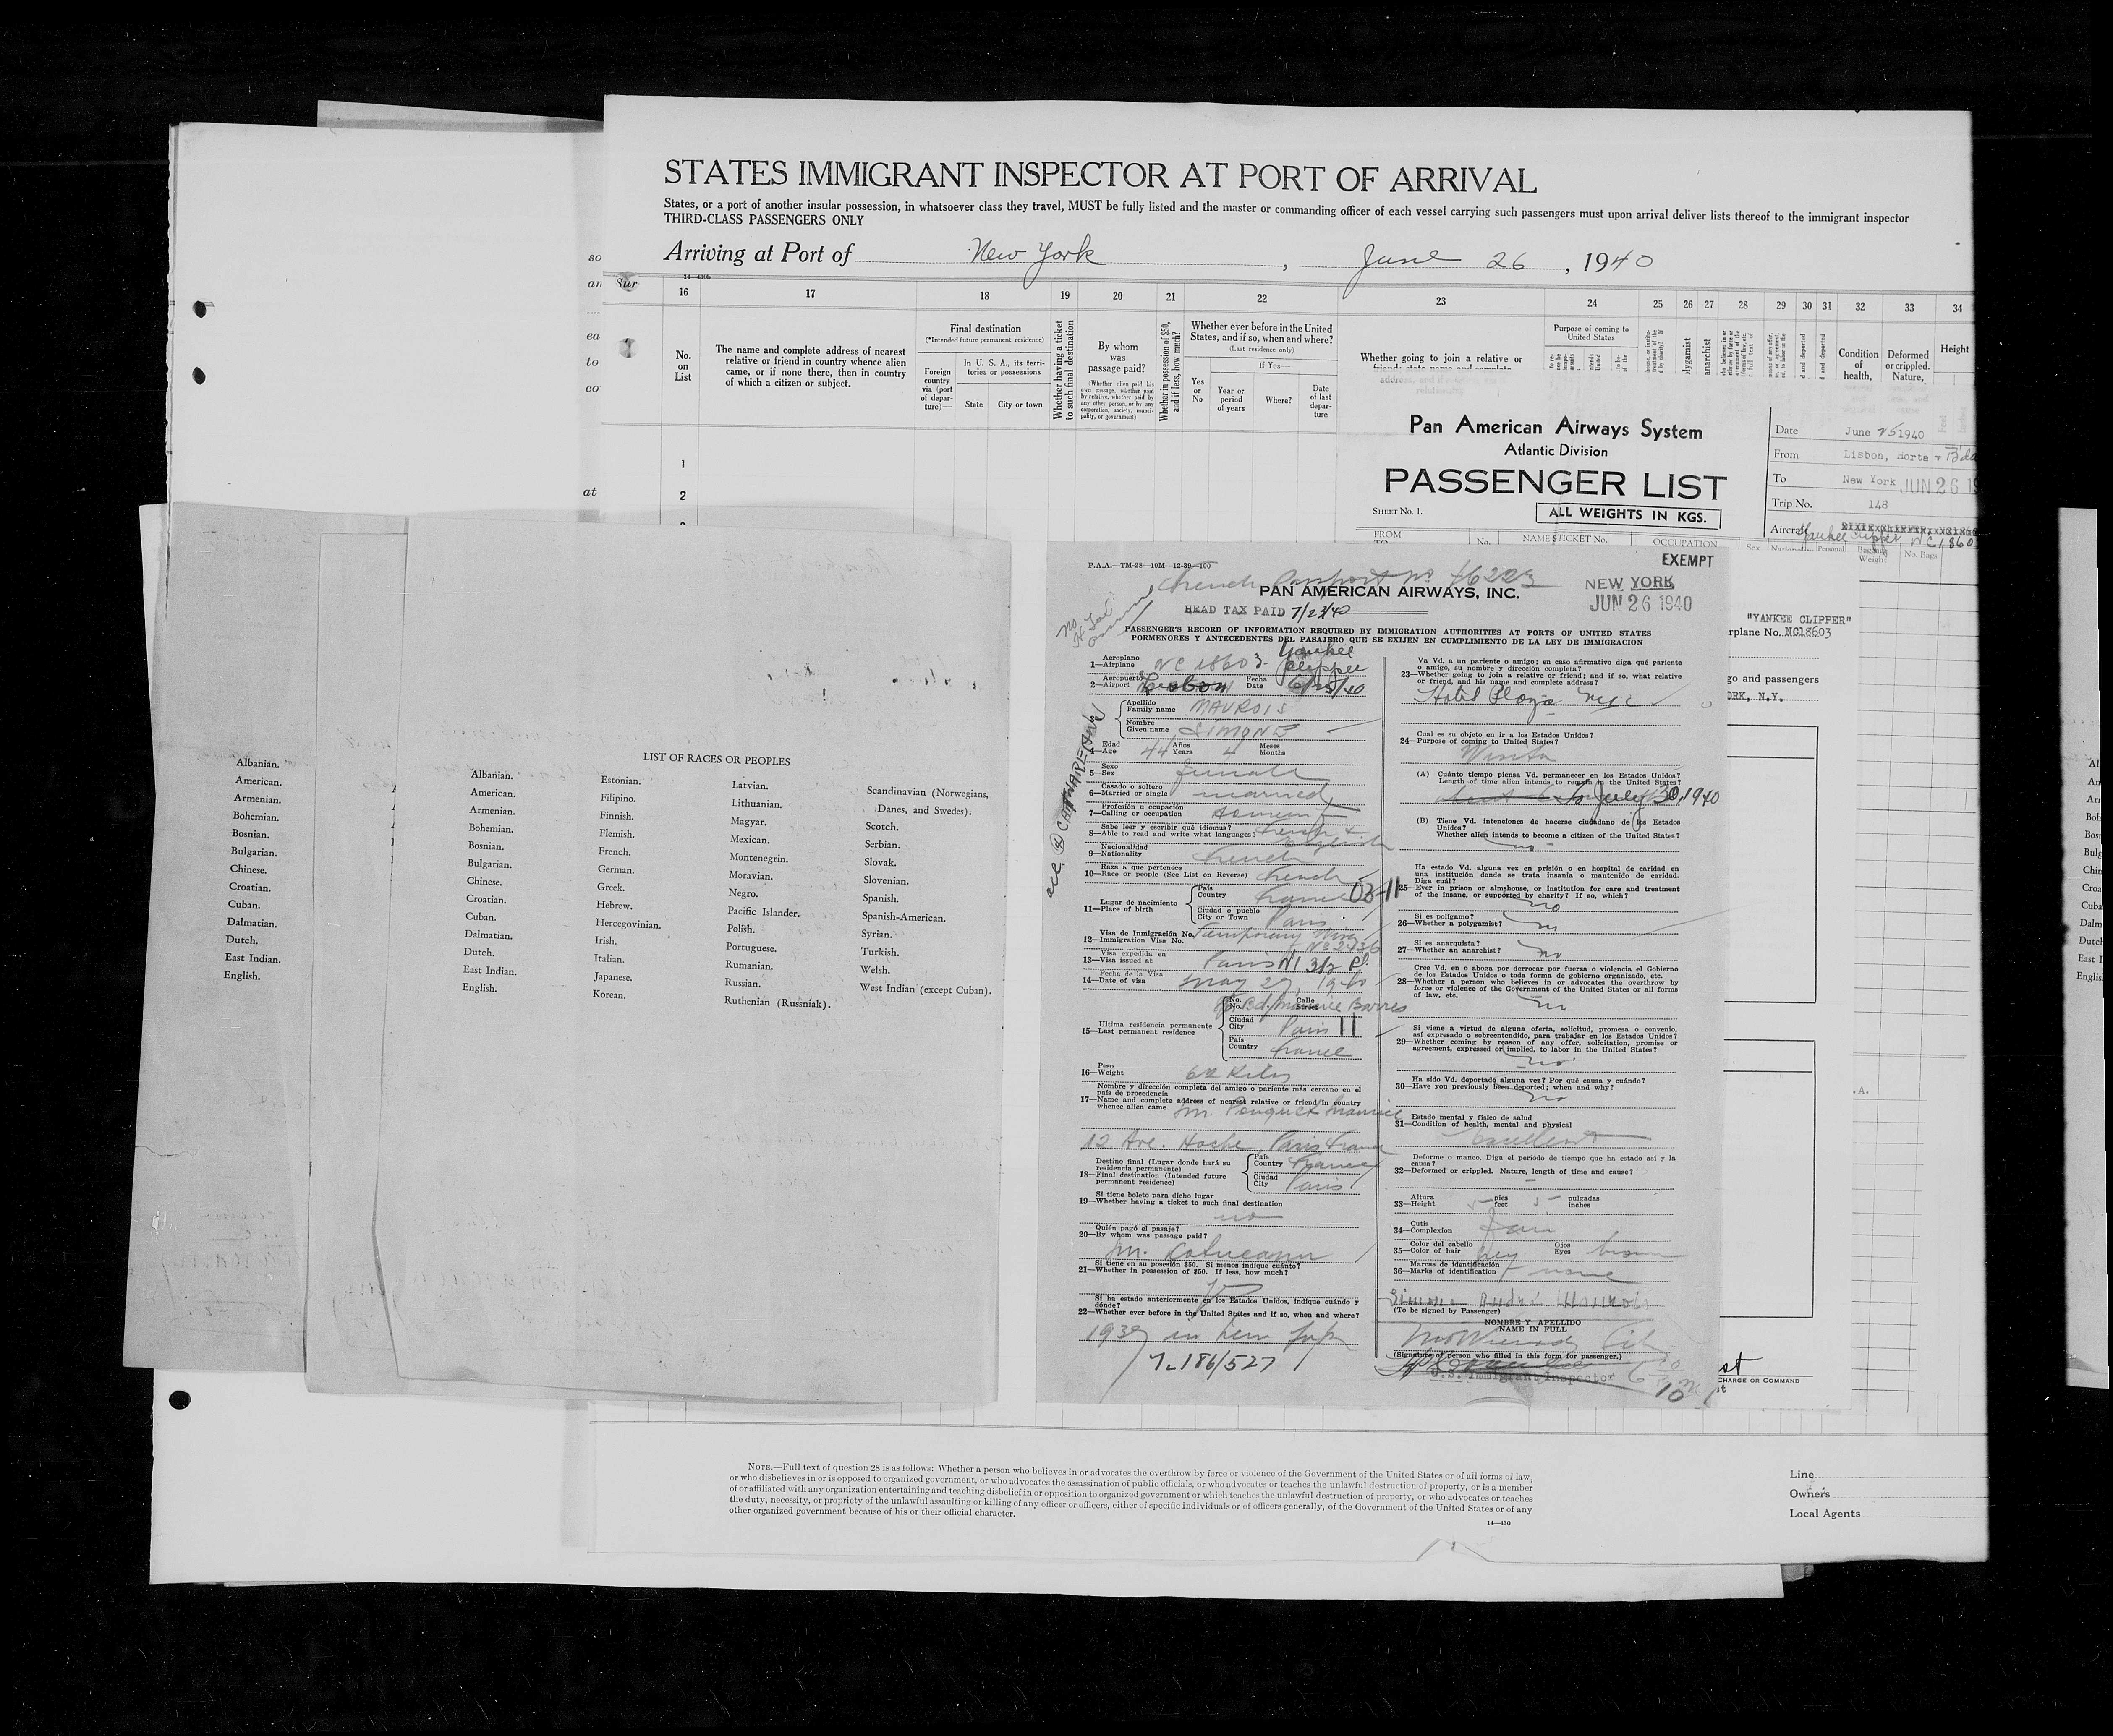 STATES IMMIGRANT INSPECTOR AT PORT OF ARRIVAL
States, or a port of another insular possession, in whatsoever class they travel, MUST be fully listed and the master or commanding officer of each vessel carrying such passengers must upon arrival deliver lists thereof to the immigrant inspector
THIRD-CLASS PASSENGERS ONLY
Arriving at Port of New York, June 26, 1940
16 17 18 19 20 21 22 23 24 25 26 27 28 29 30 31 32 33 34
No. on List
The name and complete address of nearest
relative or friend in country whence alien
came, or if none there, then in country
of which a citizen or subject.
Final destination
(*Intended future permanent residence)
Foreign country via (port of departure)—
In U. S. A., its territories or possessions
State
City or town
Whether having a ticket to such final destination
By whom was passage paid?
(Whether alien paid his own passage, whether paid by relative, whether paid by any other person, or by any corporation, society, municipality, or government)
Whether in possession of $50, and if less, how much?
Whether ever before in the United
States, and if so, when and where?
(Last residence only)
If Yes—
Yes or No
Year or period of years
Where?
Date of last departure
Whether going to join a relative or
Purpose of coming to United States
Condition of health,
Deformed or crippled. Nature,
Height
1
2
Pan American Airways System
Atlantic Division
PASSENGER LIST
SHEET No. 1.
ALL WEIGHTS IN KGS.
Date June 25 1940
From Lisbon, Horta + B'da
To New York JUN 26
Trip No. 148
Aircraft Yankee Clipper NC18603
FROM
No. NAME & TICKET No. OCCUPATION Sex
Baggage Weight No. Bags
"YANKEE CLIPPER"
rplane No. NC18603
go and passengers
ORK, N.Y.
CHARGE OR COMMAND
Albanian.
American.
Armenian.
Bohemian.
Bosnian.
Bulgarian.
Chinese.
Croatian.
Cuban.
Dalmatian.
Dutch.
East Indian.
English.
LIST OF RACES OR PEOPLES
Albanian.
American.
Armenian.
Bohemian.
Bosnian.
Bulgarian.
Chinese.
Croatian.
Cuban.
Dalmatian.
Dutch.
East Indian.
English.
Estonian.
Filipino.
Finnish.
Flemish.
French.
German.
Greek.
Hebrew.
Hercegovinian.
Irish.
Italian.
Japanese.
Korean.
Latvian.
Lithuanian.
Magyar.
Mexican.
Montenegrin.
Moravian.
Negro.
Pacific Islander.
Polish.
Portuguese.
Rumanian.
Russian.
Ruthenian (Russniak).
Scandinavian (Norwegians,
Danes, and Swedes).
Scotch.
Serbian.
Slovak.
Slovenian.
Spanish.
Spanish-American.
Syrian.
Turkish.
Welsh.
West Indian (except Cuban).
P.A.A.—TM-28—10M—12-39—100
EXEMPT
French Passport No 46223
PAN AMERICAN AIRWAYS, INC.
NEW YORK
JUN 26 1940
HEAD TAX PAID 7/23/40
PASSENGER'S RECORD OF INFORMATION REQUIRED BY IMMIGRATION AUTHORITIES AT PORTS OF UNITED STATES
PORMENORES Y ANTECEDENTES DEL PASAJERO QUE SE EXIJEN EN CUMPLIMIENTO DE LA LEY DE IMMIGRACION
Aeroplano
1—Airplane NC 18603 Yankee Clipper
Aeropuerto Fecha
2—Airport Lisbon Date 6/25/40
Apellido
Family name MAUROIS
Nombre
Given name SIMONE
Edad Años Meses
4—Age 44 Years 4 Months
Sexo
5—Sex female
Casado o soltero
6—Married or single married
Profesión u ocupación
7—Calling or occupation
Sabe leer y escribir qué idiomas?
8—Able to read and write what languages? French & English
Nacionalidad
9—Nationality French
Raza a que pertenece
10—Race or people (See List on Reverse) French
Lugar de nacimiento
11—Place of birth
País
Country France
Ciudad o pueblo
City or Town Paris
Visa de Inmigración No.
12—Immigration Visa No. Temporary Visa
Visa expedida en
13—Visa issued at Paris
Fecha de la Visa
14—Date of visa May 27, 1940
Ultima residencia permanente
15—Last permanent residence
No. Calle
No. Street Bd. Maurice Barres
Ciudad
City Paris
País
Country France
Peso
16—Weight 62 Kilos
Nombre y dirección completa del amigo o pariente más cercano en el
país de procedencia
17—Name and complete address of nearest relative or friend in country
whence alien came M. Pouquet Maurice
12 Ave. Hoche Paris France
Destino final (Lugar donde hará su
residencia permanente)
18—Final destination (Intended future
permanent residence)
País
Country France
Ciudad
City Paris
Si tiene boleto para dicho lugar
19—Whether having a ticket to such final destination
no
Quién pagó el pasaje?
20—By whom was passage paid?
Si tiene en su posesión $50. Si menos indique cuánto?
21—Whether in possession of $50. If less, how much?
Si ha estado anteriormente en los Estados Unidos, indique cuándo y
dónde?
22—Whether ever before in the United States and if so, when and where?
1939 in New York
Va Vd. a un pariente o amigo; en caso afirmativo diga qué pariente
o amigo, su nombre y dirección completa?
23—Whether going to join a relative or friend; and if so, what relative
or friend, and his name and complete address?
Hotel Plaza NYC
Cual es su objeto en ir a los Estados Unidos?
24—Purpose of coming to United States?
(A) Cuánto tiempo piensa Vd. permanecer en los Estados Unidos?
Length of time alien intends to remain in the United States?
to July 30, 1940
(B) Tiene Vd. intenciones de hacerse ciudadano de los Estados
Unidos?
Whether alien intends to become a citizen of the United States?
no
Ha estado Vd. alguna vez en prisión o en hospital de caridad en
una institución donde se trata insania o mantenido de caridad.
Diga cuál?
25—Ever in prison or almshouse, or institution for care and treatment
of the insane, or supported by charity? If so, which?
no
Si es polígamo?
26—Whether a polygamist? no
Si es anarquista?
27—Whether an anarchist? no
Cree Vd. en o aboga por derrocar por fuerza o violencia el Gobierno
de los Estados Unidos o toda forma de gobierno organizado, etc.
28—Whether a person who believes in or advocates the overthrow by
force or violence of the Government of the United States or all forms
of law, etc.
no
Si viene a virtud de alguna oferta, solicitud, promesa o convenio,
así expresado o sobreentendido, para trabajar en los Estados Unidos?
29—Whether coming by reason of any offer, solicitation, promise or
agreement, expressed or implied, to labor in the United States?
no
Ha sido Vd. deportado alguna vez? Por qué causa y cuándo?
30—Have you previously been deported; when and why?
no
Estado mental y físico de salud
31—Condition of health, mental and physical
excellent
Deforme o manco. Diga el período de tiempo que ha estado así y la
causa?
32—Deformed or crippled. Nature, length of time and cause?
Altura pies pulgadas
33—Height 5 feet 5 inches
Cutis
34—Complexion fair
Color del cabello Ojos
35—Color of hair grey Eyes brown
Marcas de identificación
36—Marks of identification none
Simone André Maurois
(To be signed by Passenger)
NOMBRE Y APELLIDO
NAME IN FULL
(Signature of person who filled in this form for passenger.)
U.S. Immigrant Inspector
NOTE.—Full text of question 28 is as follows: Whether a person who believes in or advocates the overthrow by force or violence of the Government of the United States or of all forms of law,
or who disbelieves in or is opposed to organized government, or who advocates the assassination of public officials, or who advocates or teaches the unlawful destruction of property, or is a member
of or affiliated with any organization entertaining and teaching disbelief in or opposition to organized government or which teaches the unlawful destruction of property, or who advocates or teaches
the duty, necessity, or propriety of the unlawful assaulting or killing of any officer or officers, either of specific individuals or of officers generally, of the Government of the United States or of any
other organized government because of his or their official character.
14—430
Line
Owners
Local Agents